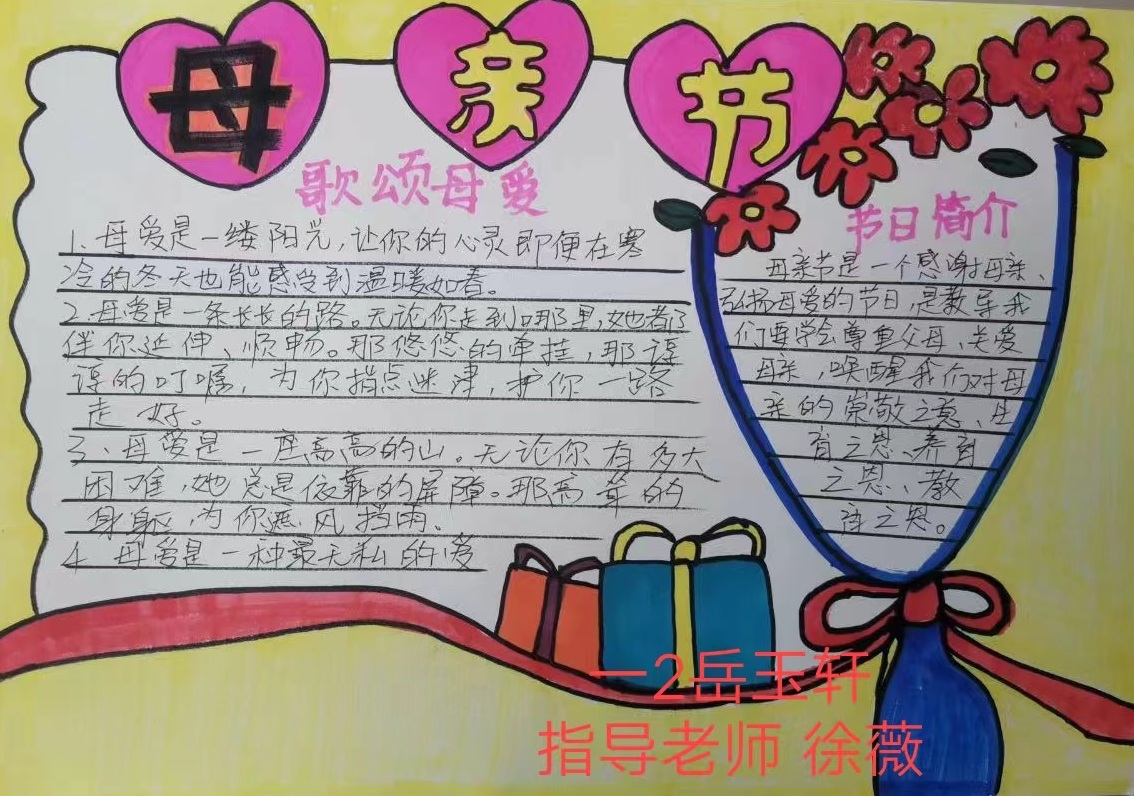 母亲节
歌颂母爱
1、母爱是一缕阳光,让你的心灵即便在寒
冷的冬天也能感受到温暖如春。
2、母爱是一条长长的路。无论你走到哪里,她都
伴你延伸、顺畅。那悠悠的牵挂,那谆
谆的叮嘱,为你指点迷津,护你一路
走好。
3、母爱是一座高高的山。无论你有多大
困难,她总是依靠的屏障。那高耸的
身躯,为你遮风挡雨。
4、母爱是一种最无私的爱
节日简介
母亲节是一个感谢母亲、
弘扬母爱的节日,是教导我
们要学会尊重父母、关爱
母亲,唤醒我们对母
亲的崇敬之意、生
育之恩、养育
之恩、教
诲之恩。
一2岳玉轩
指导老师 徐薇